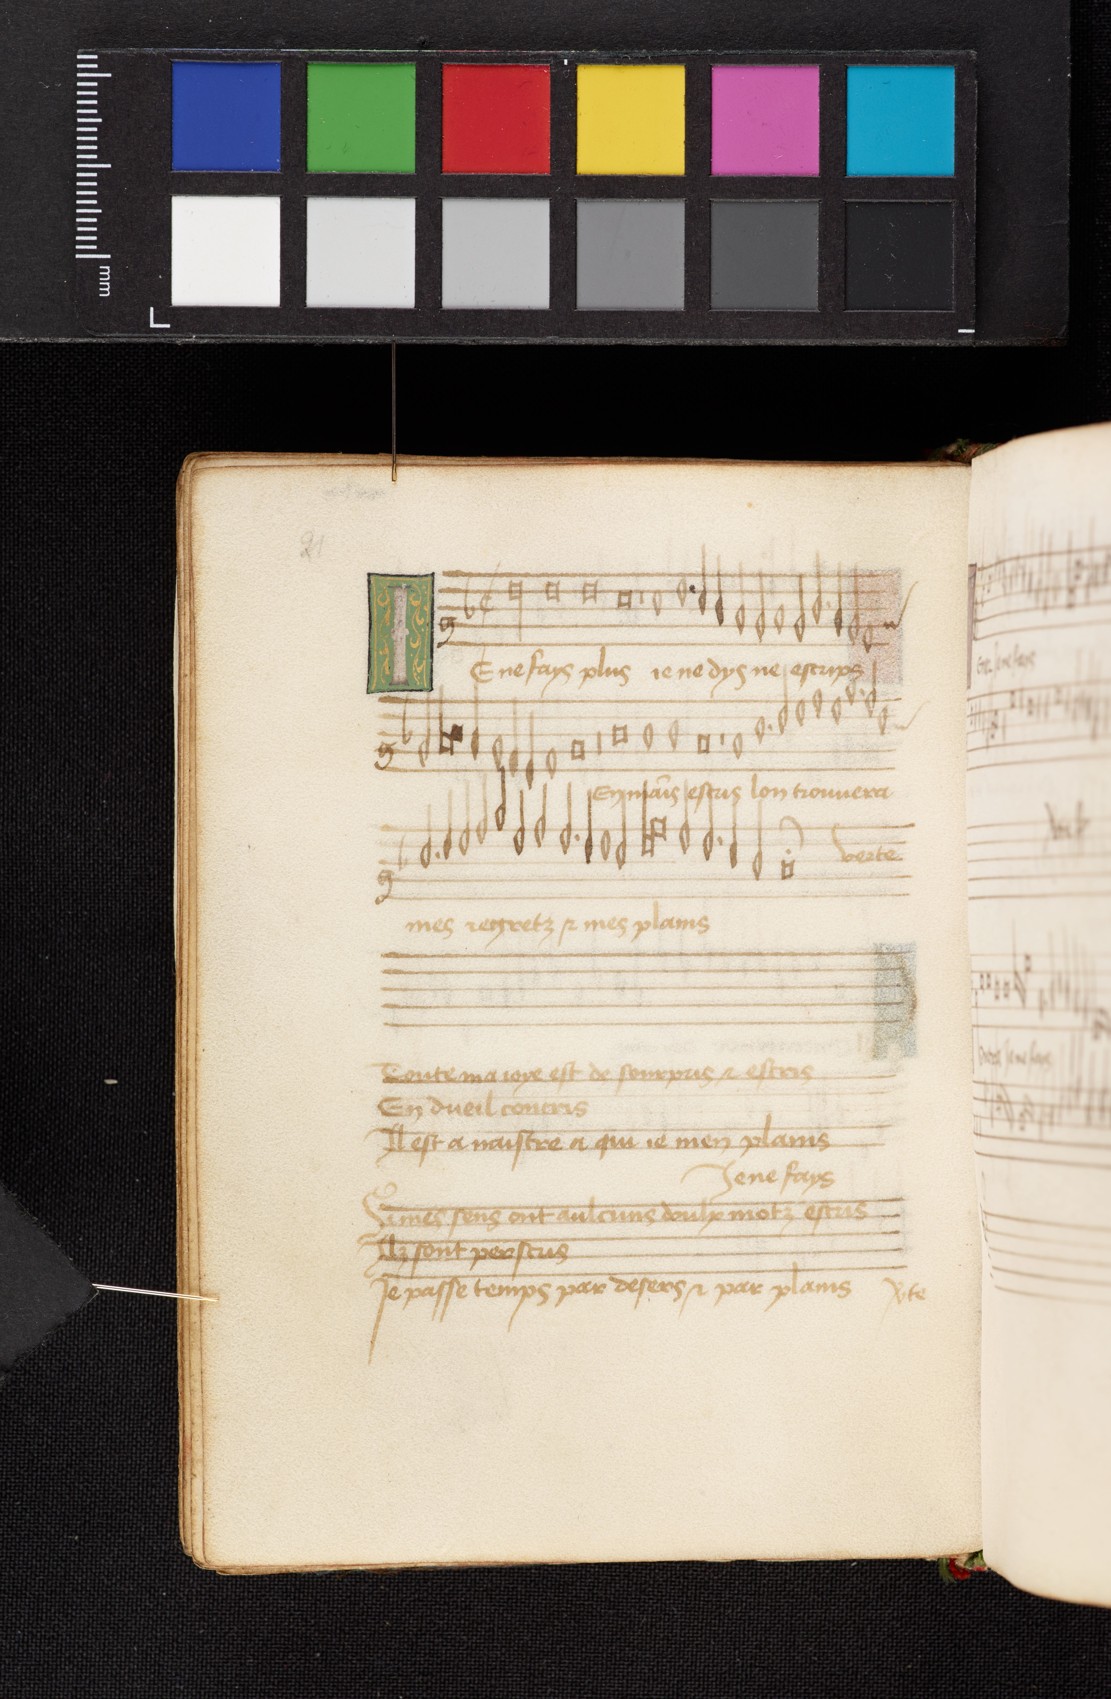 mm
21
Je ne fays plus ie ne dys ne escrips
En mais escris lon trouuera
verte
mes regretz & mes plains
Toute ma ioye est de souspris & escris
En dueil concris
Il est a naistre a qui ie men plains
Je ne fays
Si mes sens ont aulcuns doulx motz escris
Ilz sont perscris
Je passe temps par desers & par plains
Vte